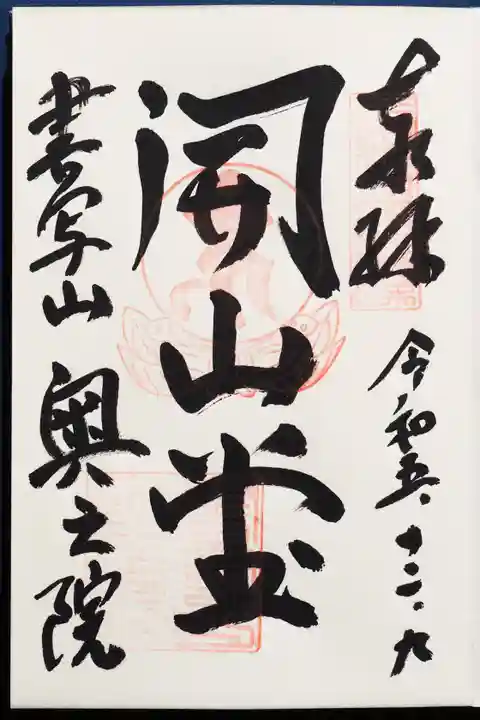 奉拝
令和五、十二、九
開山堂
書写山 奥之院